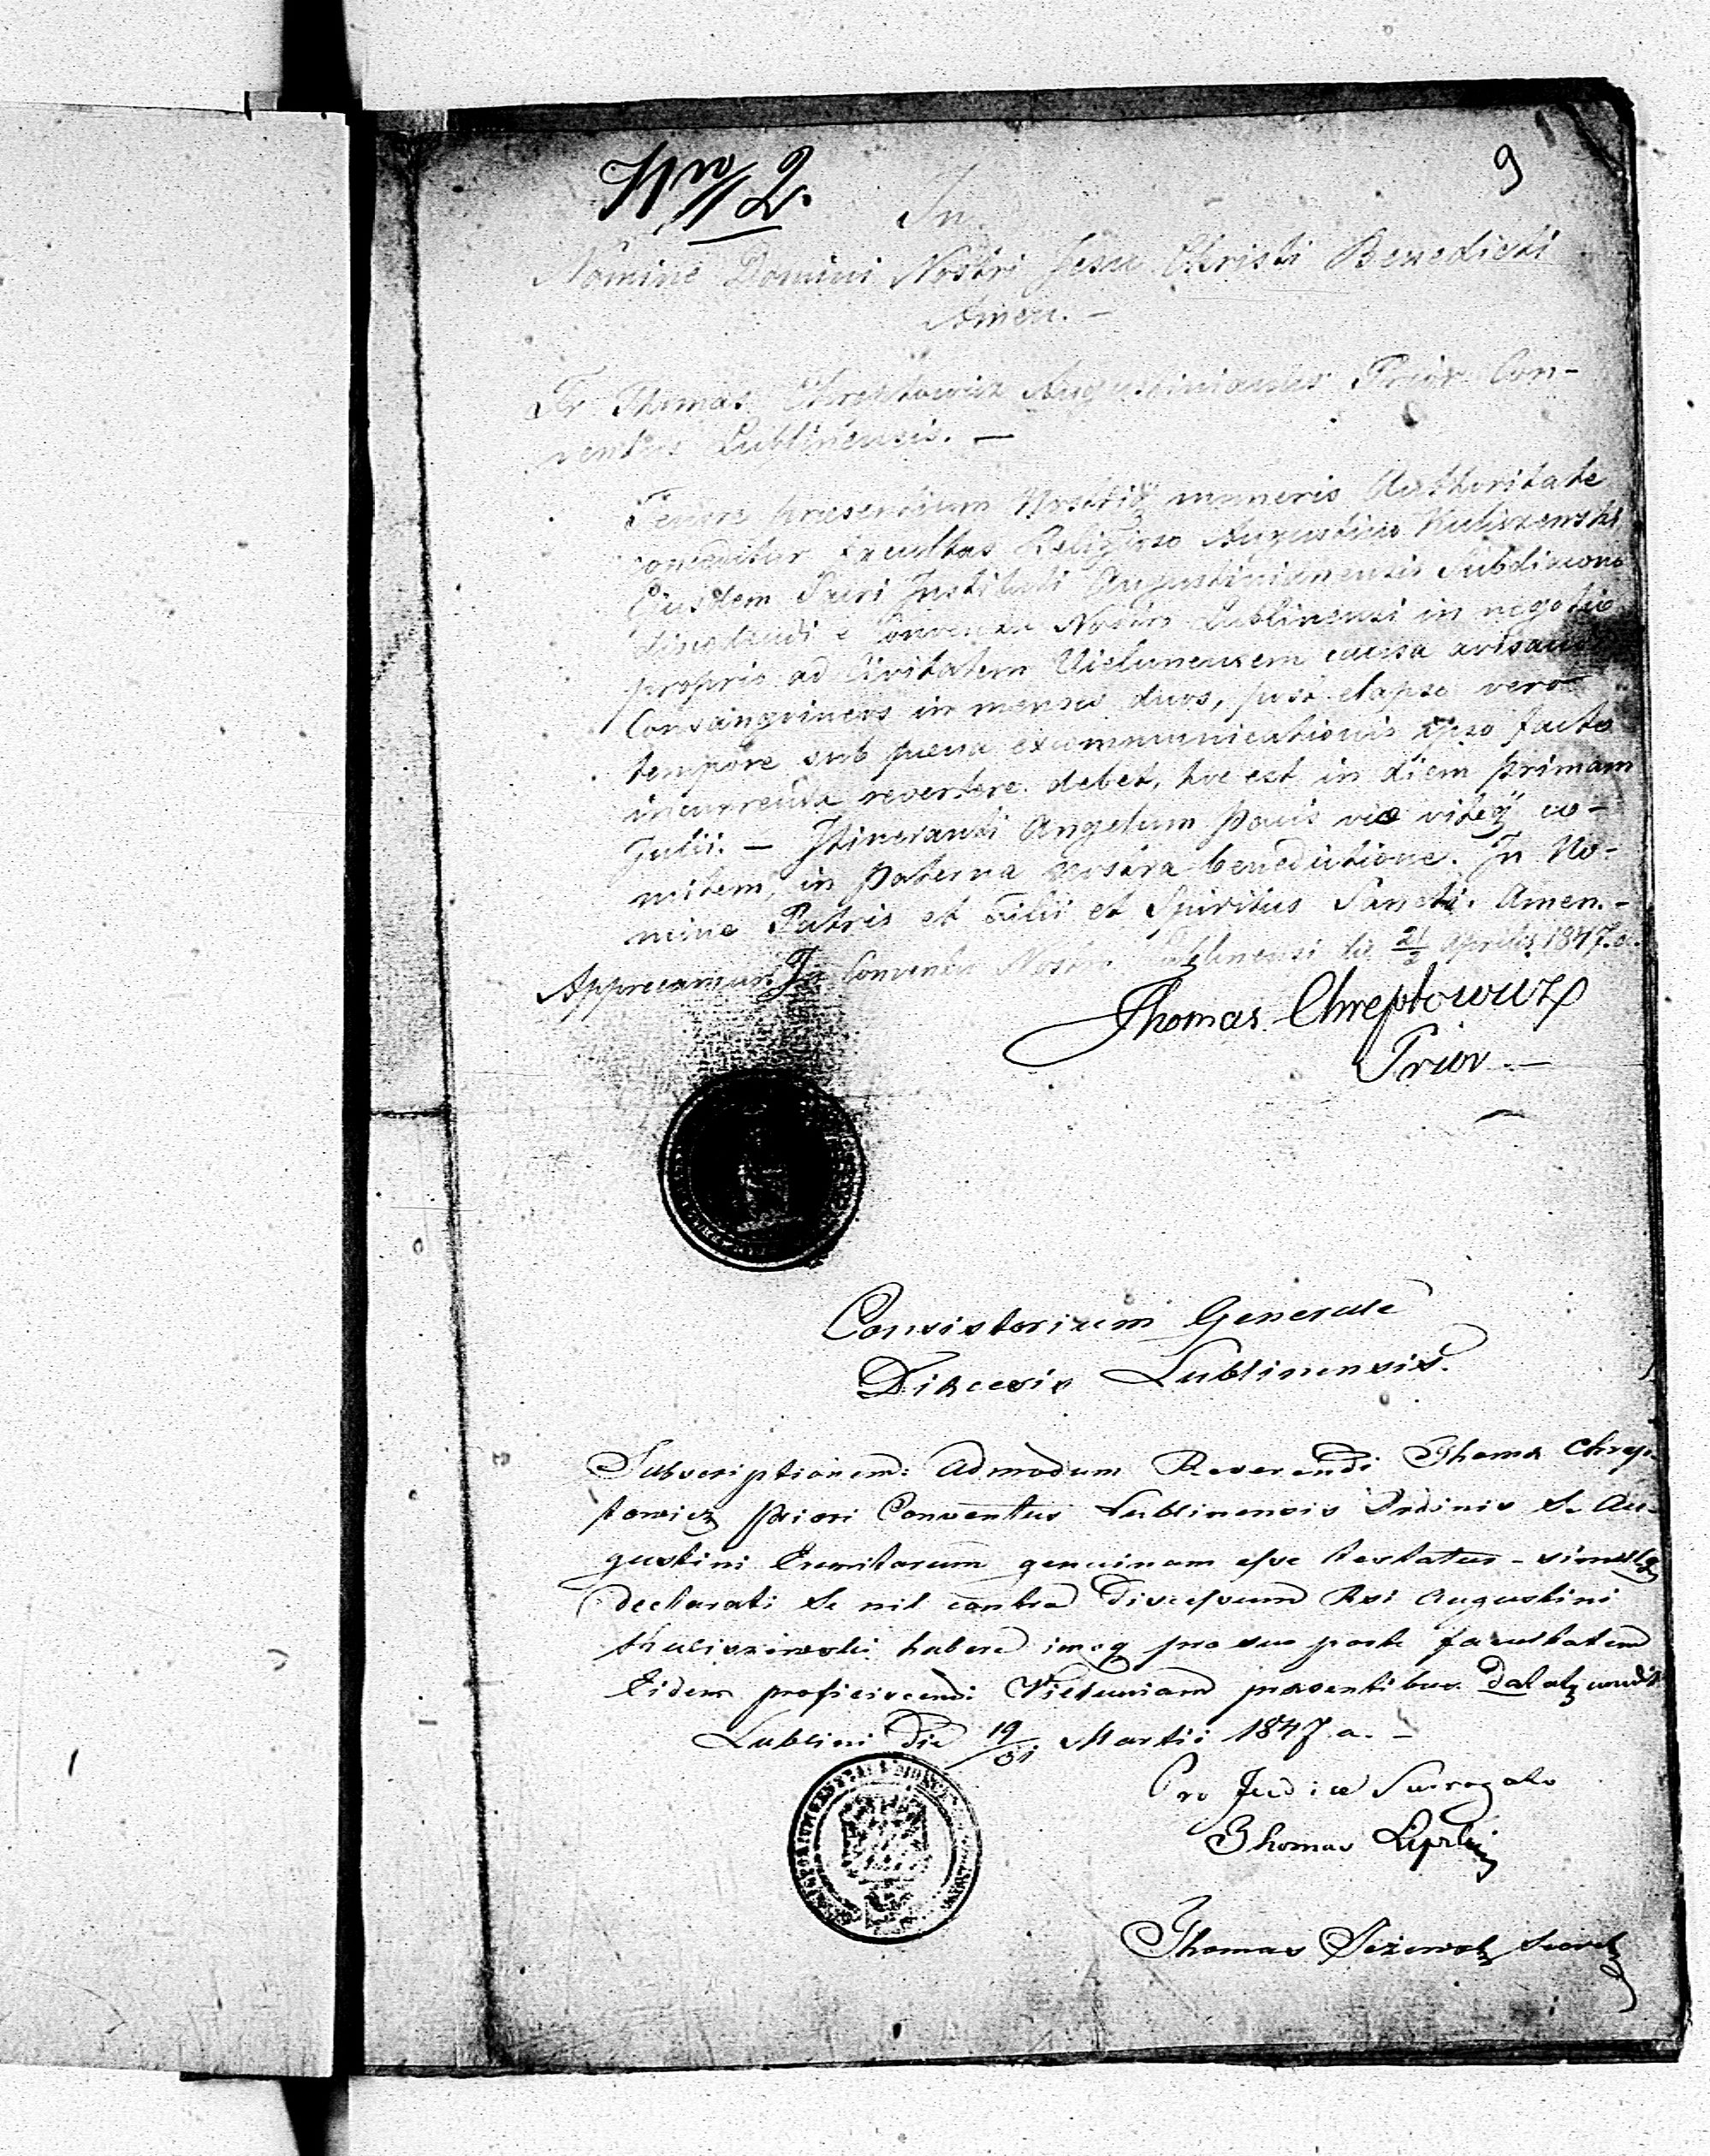 Nro 2.
9
In
Nomine Domini Nostri Jesu Christi Benedicti
Amen. —
Fr Thomas Chreptowicz Augustinianus Prior Con-
ventus Lublinensis. —
Tenore praesentium Nostriq muneris Authoritate
conceditur facultas Religioso Augustino Kuliszewski
Ejusdem Sacri Instituti Augustinianensis Subdiacono
discedendi e Conventu Nostro Lublinensi in negotio
proprio ad Civitatem Vielunensem causa
Consanguineos in menses duos, post elapso vero
tempore sub paena excommunicationis ipso facto
incurrenda revertere debet, hoc est in diem primam
Julii. — Itineranti Angelum pacis viae viteq co-
mitem, in paterna nostra benedictione. In No-
mine Patris et Filii et Spiritus Sancti. Amen. -
Apprecamur. In Conventu Nostro Lublinensi die Aprilis 1847. a.
Thomas Chreptowicz
Prior —
Consistorium Generale
Diaecesis Lublinensis.
Subscriptionem Admodum Reverendi Thoma Chrep-
towicz Priori Conventus Lublinensis Ordinis S. Au-
gustini Eremitarum genuinam esse testatur - simulq
declarati Se nil contra discessum Rsi Augustini
Kuliszewski habere imoq pro sua parte facultatem
Eidem proficiscendi Vieluniam praesentibus
Lublini die 19/31 Martii 1847 a. -
Pro Judice Surrogato
Thomas
Thomas Secret